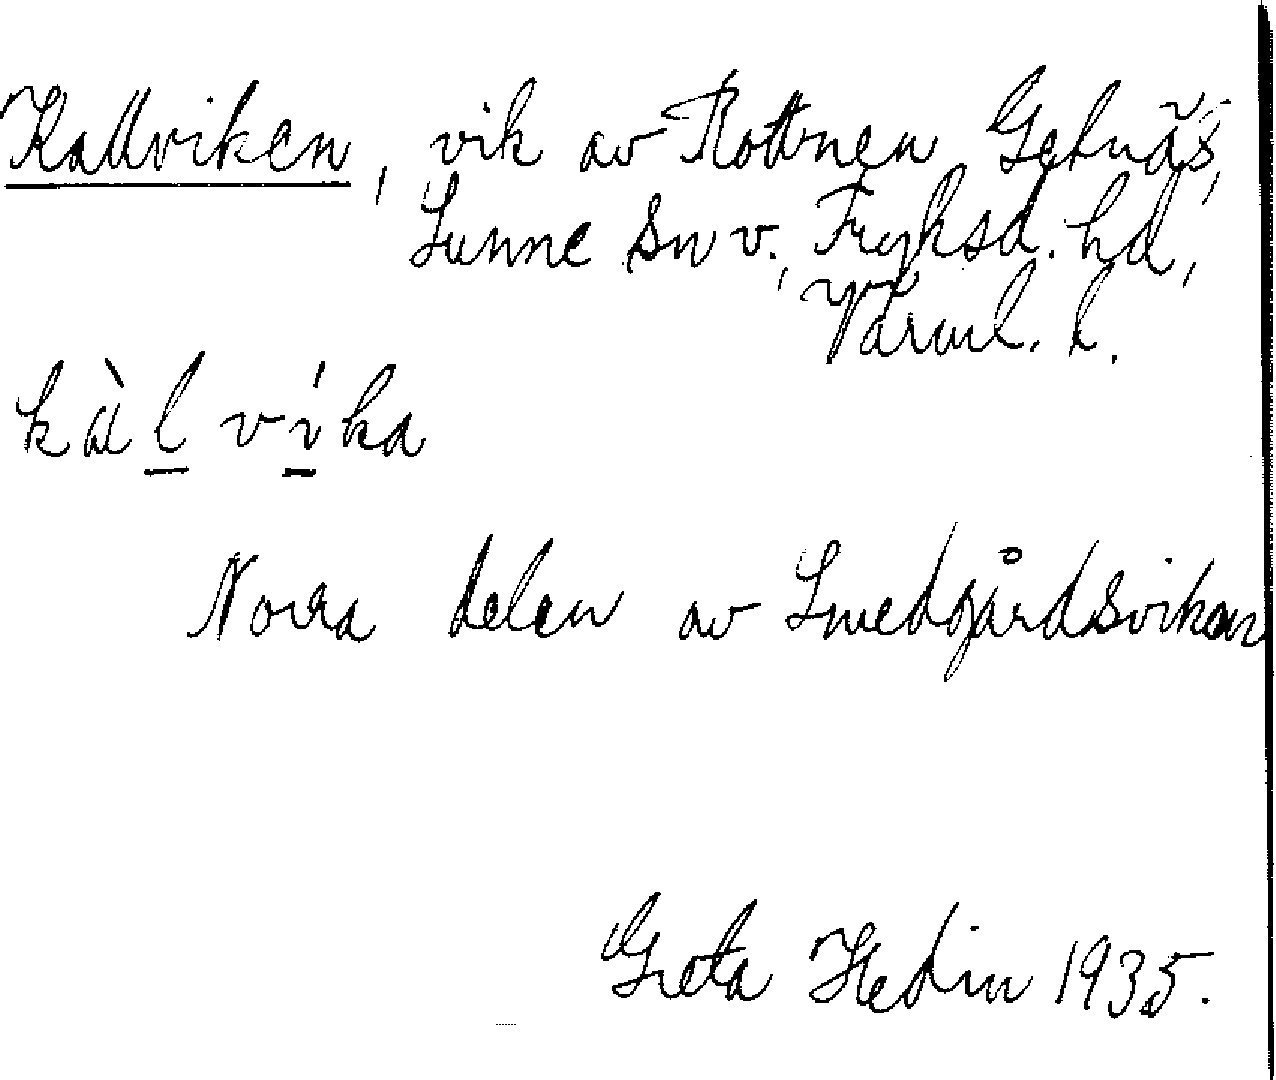 Kallviken, vik av Rottnen, Getnäs,
Sunne sn v., Fryksd. hd,
Värml. l.
kàl víka
Norra delen av Smedgårdsviken
Greta Hedin 1935.